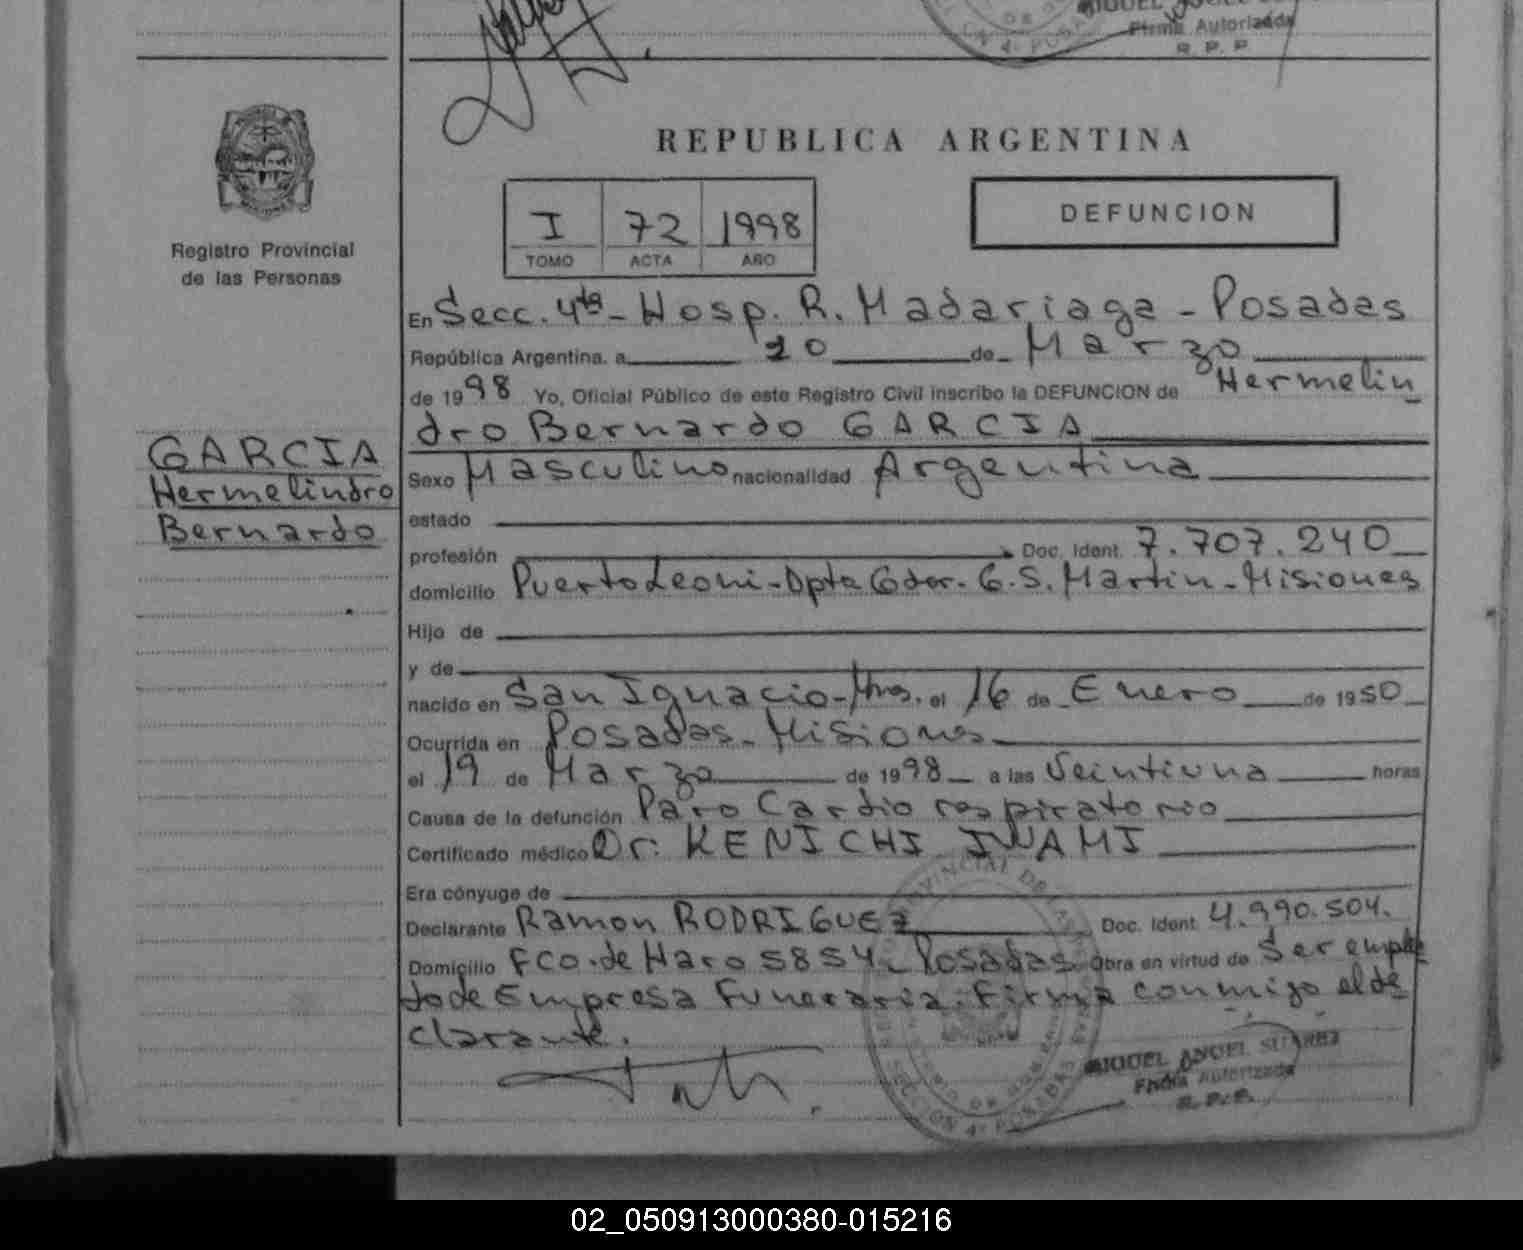 MIGUEL
Firma Autorizada
R. P. P.
REPUBLICA ARGENTINA
I 72 1998
TOMO ACTA AÑO
DEFUNCION
Registro Provincial
de las Personas
GARCIA
Hermelindro
Bernardo
En Secc. 4ta - Hosp. R. Madariaga - Posadas
República Argentina, a 20 de Marzo
de 1998 Yo, Oficial Público de este Registro Civil inscribo la DEFUNCION de Hermelin
dro Bernardo GARCIA
Sexo Masculino nacionalidad Argentina
estado
profesión Doc. Ident. 7.707.240
domicilio Puerto Leoni - Dpto Gdor. G. S. Martin - Misiones
Hijo de
y de
nacido en San Ignacio - Mnes. el 16 de Enero de 1950
Ocurrida en Posadas - Misiones
el 19 de Marzo de 1998 a las Veintiuna horas
Causa de la defunción Paro Cardio respiratorio
Certificado médico Dr: KENICHI IWAMI
Era cónyuge de
Declarante Ramon RODRIGUEZ Doc. Ident 4.990.504.
Domicilio Fco. de Haro 5854 - Posadas obra en virtud de Ser emplea
do de Empresa Funeraria. Firma conmigo el de
clarante.
MIGUEL ANGEL SUAREZ
Firma Autorizada
R. P. P.
SECCION 4ª POSADAS
02_050913000380-015216